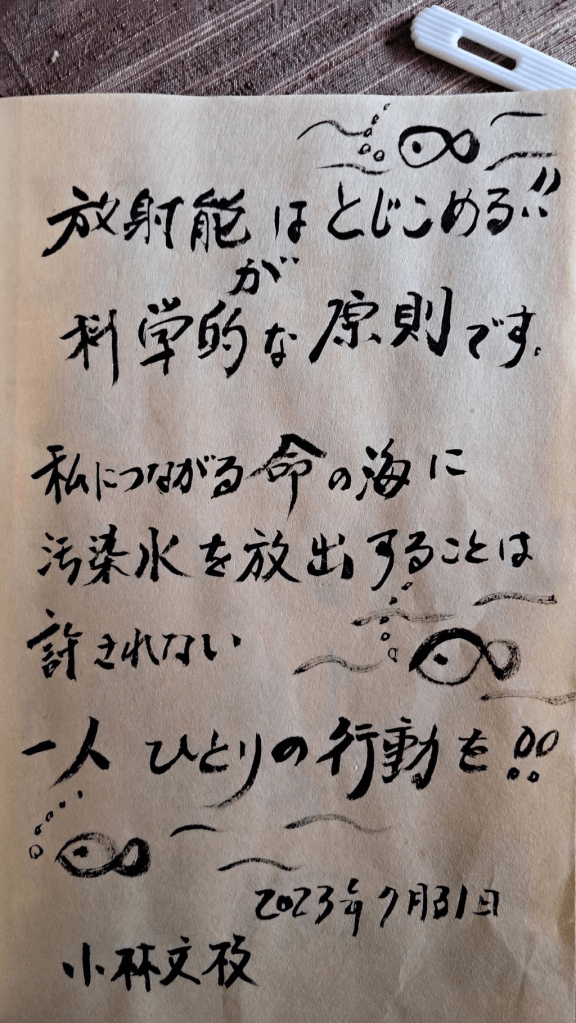 放射能はとじこめる!!
が
科学的な原則です。
私につながる命の海に
汚染水を放出することは
許されない
一人ひとりの行動を!!
2023年7月31日
小林文枝